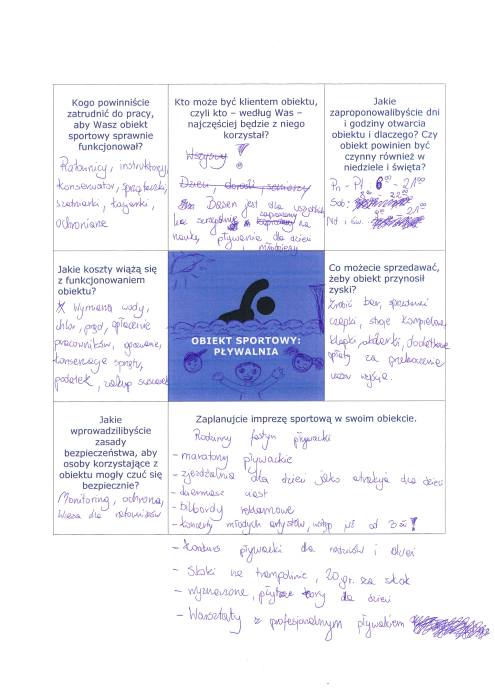 Kogo powinniście
zatrudnić do pracy,
aby Wasz obiekt
sportowy sprawnie
funkcjonował?
Ratownicy, instruktorzy,
konserwator, sprzątaczki,
szatniarki, kasjerki,
ochroniarze
Kto może być klientem obiektu,
czyli kto – według Was –
najczęściej będzie z niego
korzystał?
Wszyscy!
Dzieci, dorośli, seniorzy
Basen jest dla wszystkich
lecz szczególnie zapraszamy na
naukę pływania dla dzieci
i młodzieży
Jakie
zaproponowalibyście dni
i godziny otwarcia
obiektu i dlaczego? Czy
obiekt powinien być
czynny również w
niedziele i święta?
Pn - Pt 6⁰⁰ - 21⁰⁰
Sob: 8⁰⁰ - 22⁰⁰
Nd i św. 9⁰⁰ - 21⁰⁰
Jakie koszty wiążą się
z funkcjonowaniem
obiektu?
Wymiana wody,
chlor, prąd, opłacenie
pracowników, ogrzewanie,
konserwacja sprzętu,
podatek, zakup suszarek
OBIEKT SPORTOWY:
PŁYWALNIA
Co możecie sprzedawać,
żeby obiekt przynosił
zyski?
Zrobić bar, sprzedawać
czepki, stroje kąpielowe,
klapki, okularki, dodatkowe
opłaty za przekroczenie
czasu wyjścia.
Jakie
wprowadzilibyście
zasady
bezpieczeństwa, aby
osoby korzystające z
obiektu mogły czuć się
bezpiecznie?
Monitoring, ochrona,
wieża dla ratowników
Zaplanujcie imprezę sportową w swoim obiekcie.
Rodzinny festyn pływacki
- maratony pływackie
- zjeżdżalnia dla dzieci jako atrakcja dla dzieci
- darmowe
- bilbordy reklamowe
- koncerty młodych artystów, wstęp już od 3 zł!
- konkurs pływacki dla rodziców i dzieci
- Skoki na trampolinie, 20 gr. za skok
- wyznaczone, płytsze tory dla dzieci
- Warsztaty z profesjonalnym pływakiem